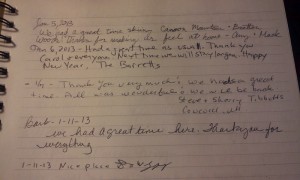 Jan 5, 2013
We had a great time skiing Cannon Mountain - Bretton
Woods. Thanks for making us feel at home - Amy + Mark
Jan 6, 2013 - Had a great time as usual. Thank you
Carol + everyone! Next time we will stay longer. Happy
New Year. The Barretts
1/9 - Thank you very much! We had a great
time. All was wonderful. We will be back
Steve + Sherry Tibbetts
1-11-13
we had a great time here. Thank you for
everything
1-11-13 Nice place